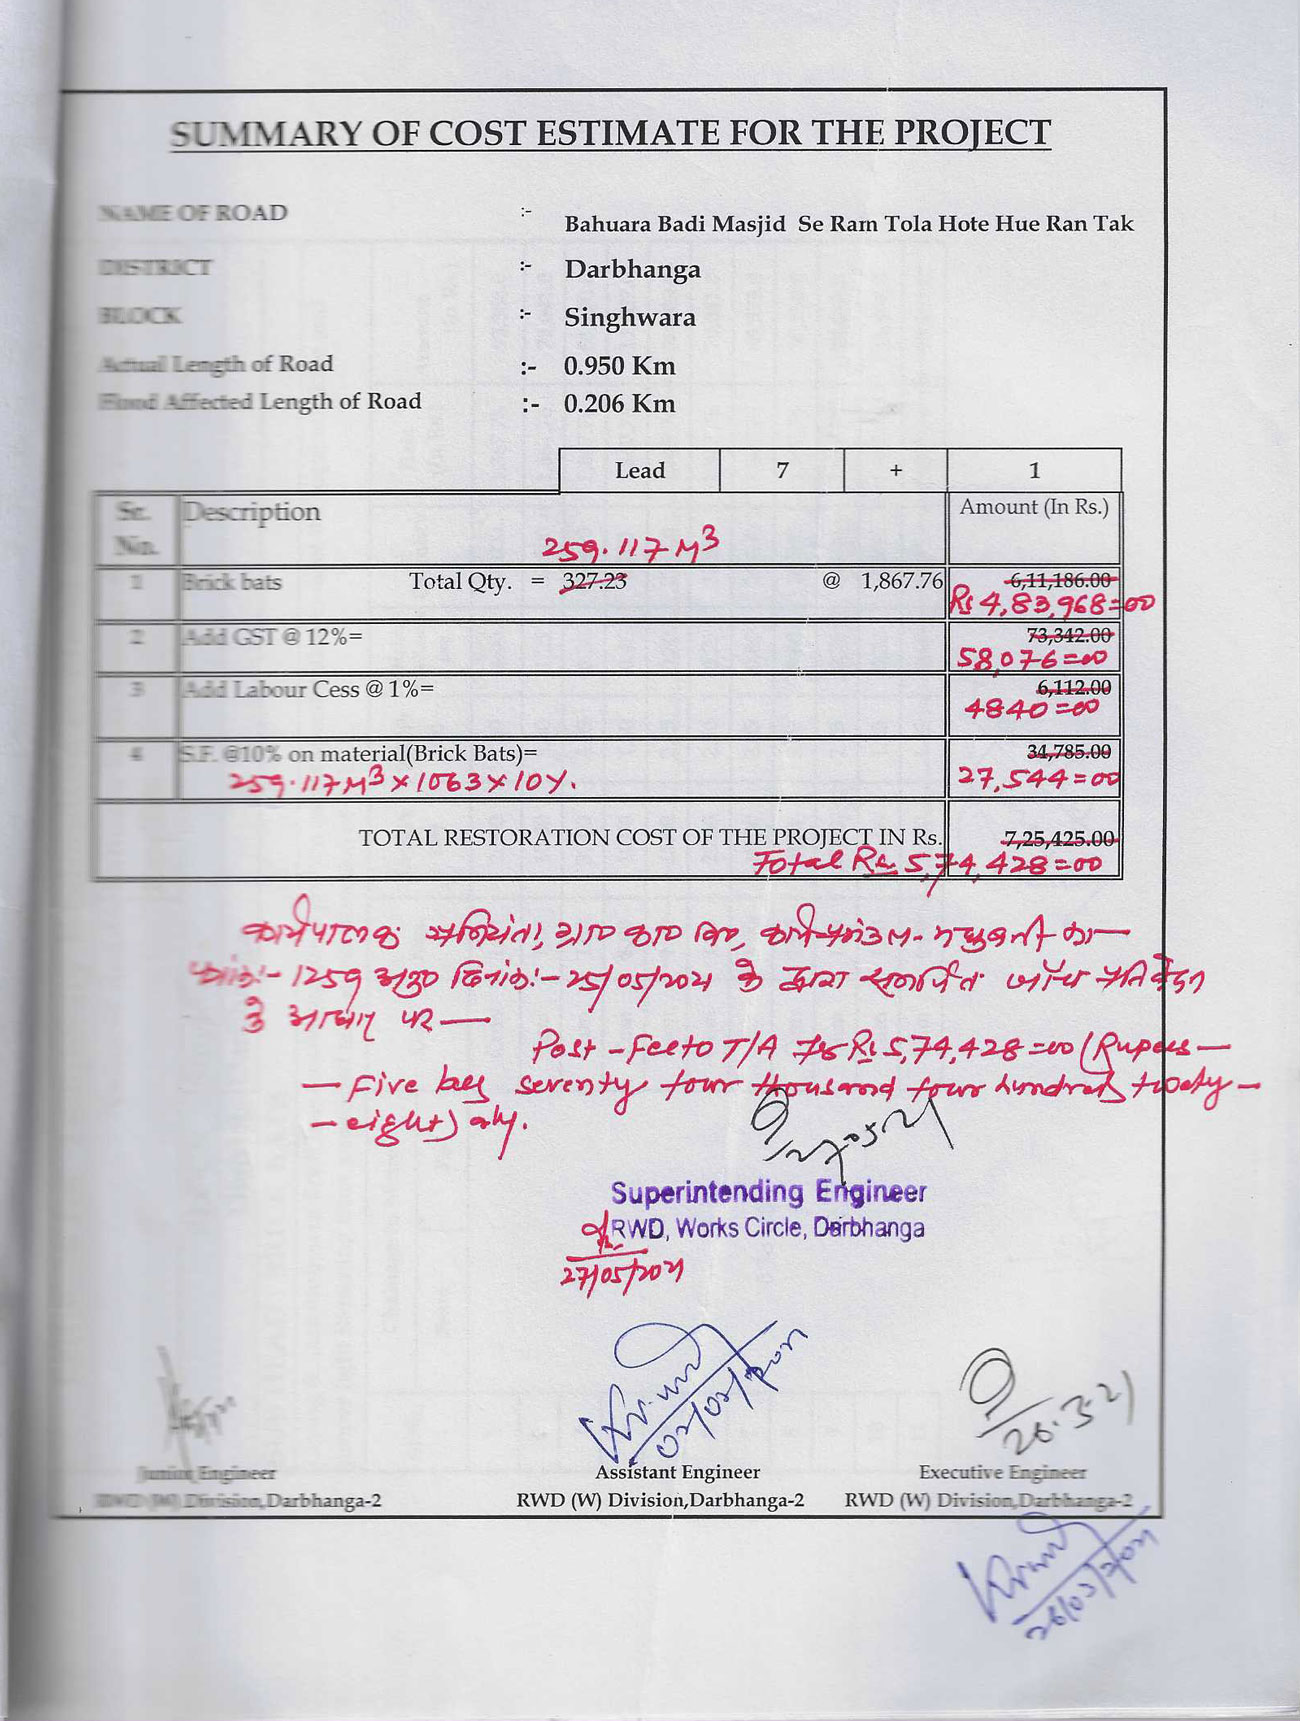 SUMMARY OF COST ESTIMATE FOR THE PROJECT
NAME OF ROAD :- Bahuara Badi Masjid Se Ram Tola Hote Hue Ran Tak
DISTRICT :- Darbhanga
BLOCK :- Singhwara
Actual Length of Road :- 0.950 Km
Flood Affected Length of Road :- 0.206 Km
Lead 7 + 1
Sr. No. Description Amount (In Rs.)
259.117 M³
1 Brick bats Total Qty. = 327.23 @ 1,867.76 6,11,186.00
Rs 4,83,968=00
2 Add GST @ 12%= 73,342.00
58,076=00
3 Add Labour Cess @ 1%= 6,112.00
4840=00
4 S.F. @10% on material(Brick Bats)= 34,785.00
259.117 M³ x 1063 x 10%. 27,544=00
TOTAL RESTORATION COST OF THE PROJECT IN Rs. 7,25,425.00
Total Rs. 5,74,428=00
कार्यपालक अभियंता, ग्रा० का० वि०, कार्य प्रमंडल-
1259 अनु० दिनांक:- 25/05/2021 के द्वारा समर्पित जाँच प्रतिवेदन
के आधार पर —
Post - T/A Rs 5,74,428=00 (Rupees —
— Five seventy four thousand four hundred twenty —
— eight)
27.05.21
Superintending Engineer
RWD, Works Circle, Darbhanga
27/05/2021
02/02/2021
26.3.21
Junior Engineer Assistant Engineer Executive Engineer
RWD (W) Division,Darbhanga-2 RWD (W) Division,Darbhanga-2 RWD (W) Division,Darbhanga-2
26/03/2021